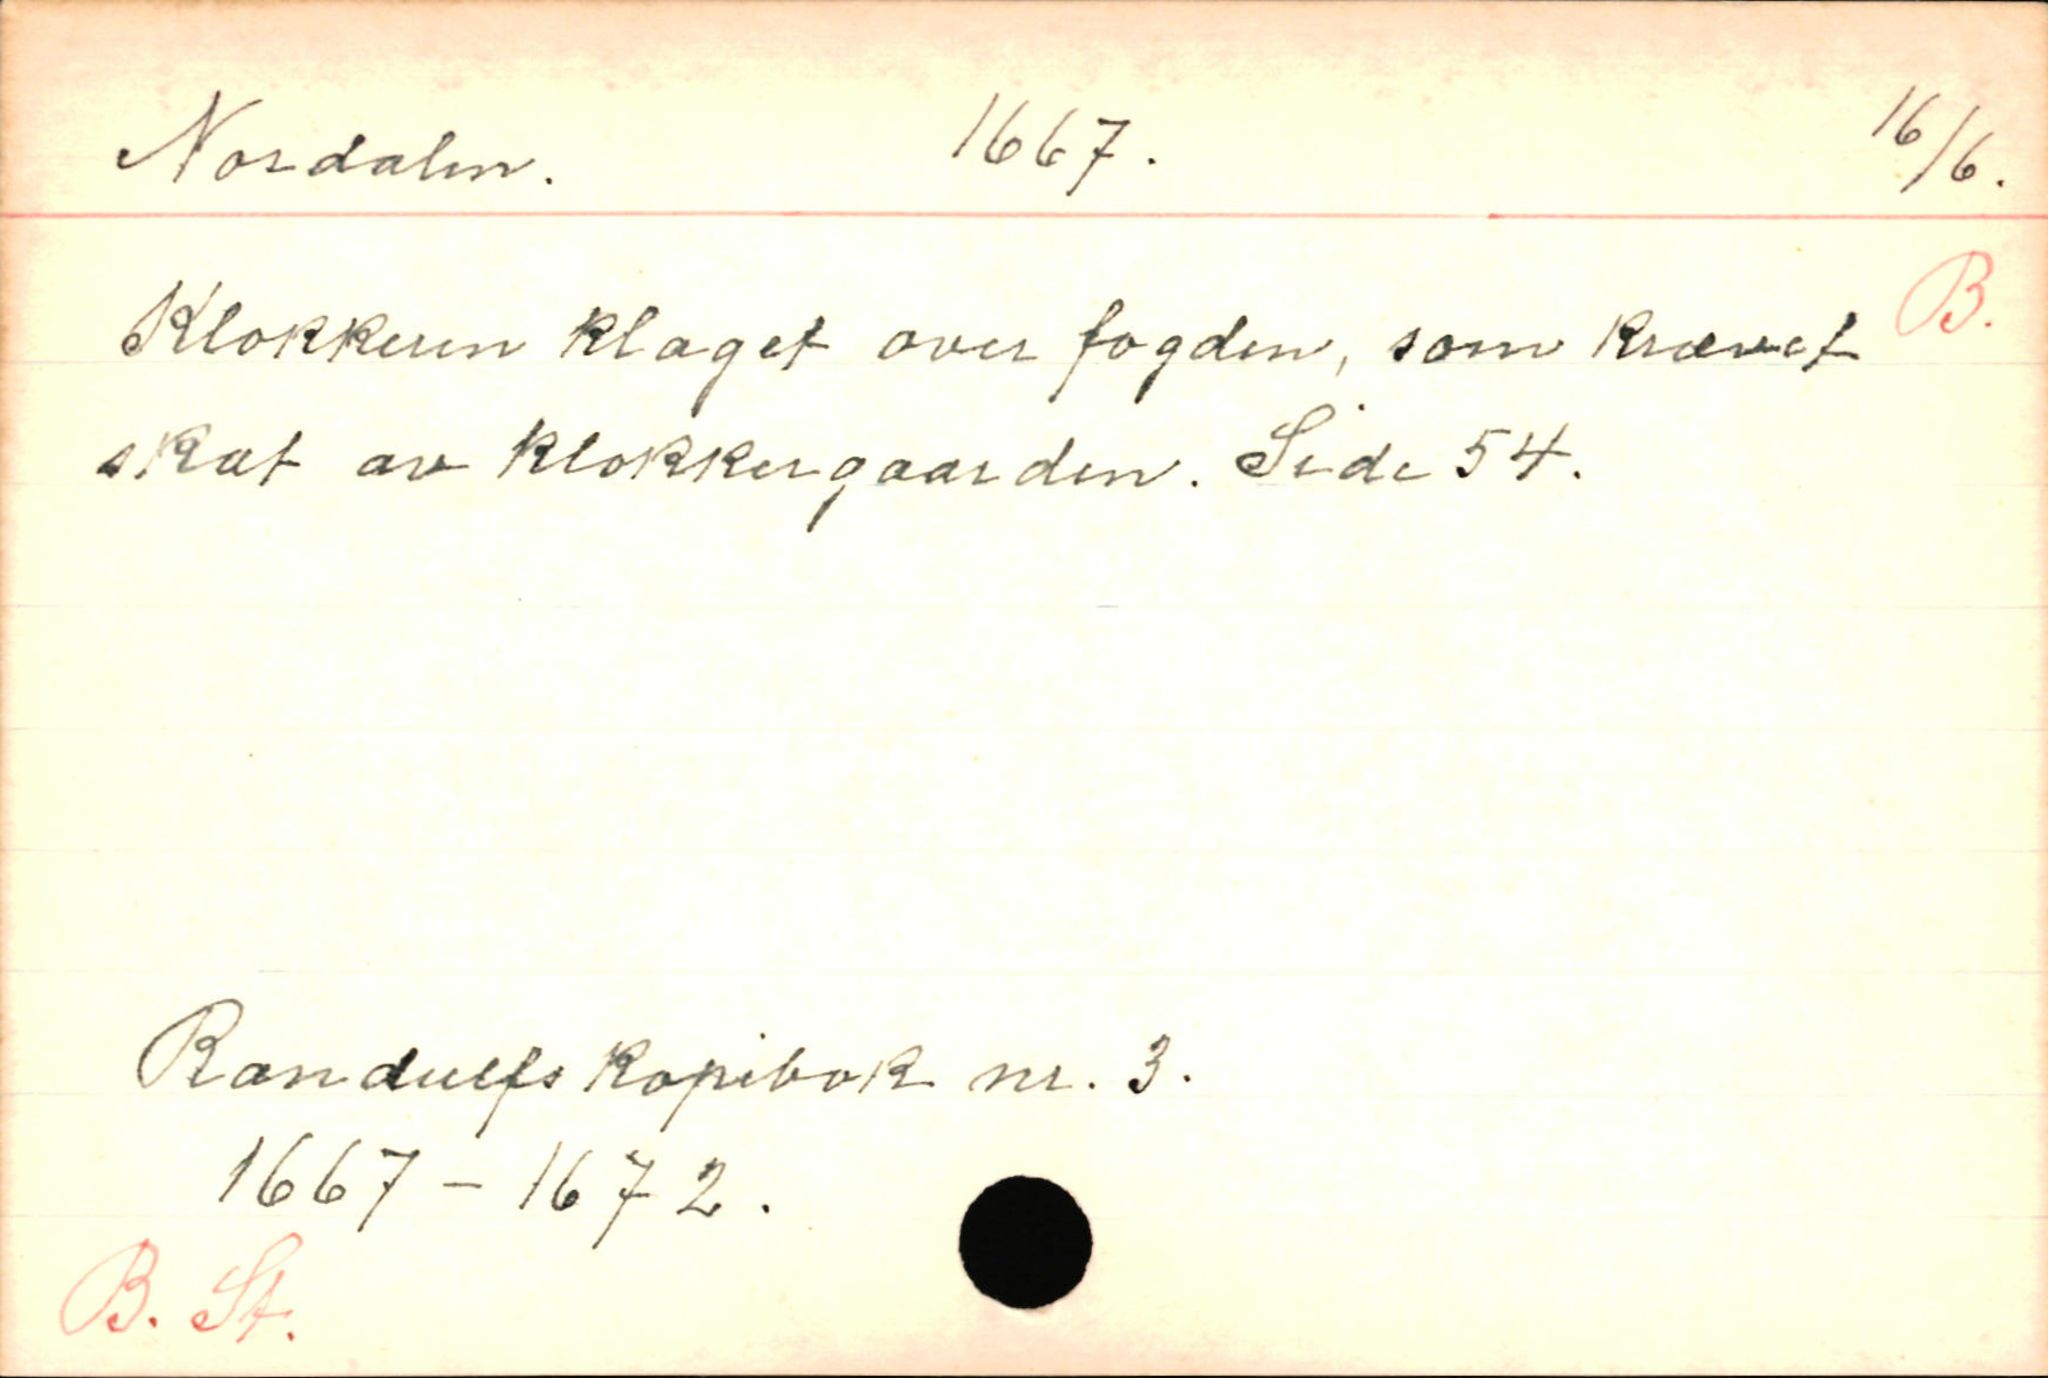 Nordalen. 1667. 16/6.
B.
Klokkeren klaget over fogden, som krævet
skat av klokkergaarden. Side 54.
Randulfs kopibok nr. 3.
1667 - 1672.
B. St.